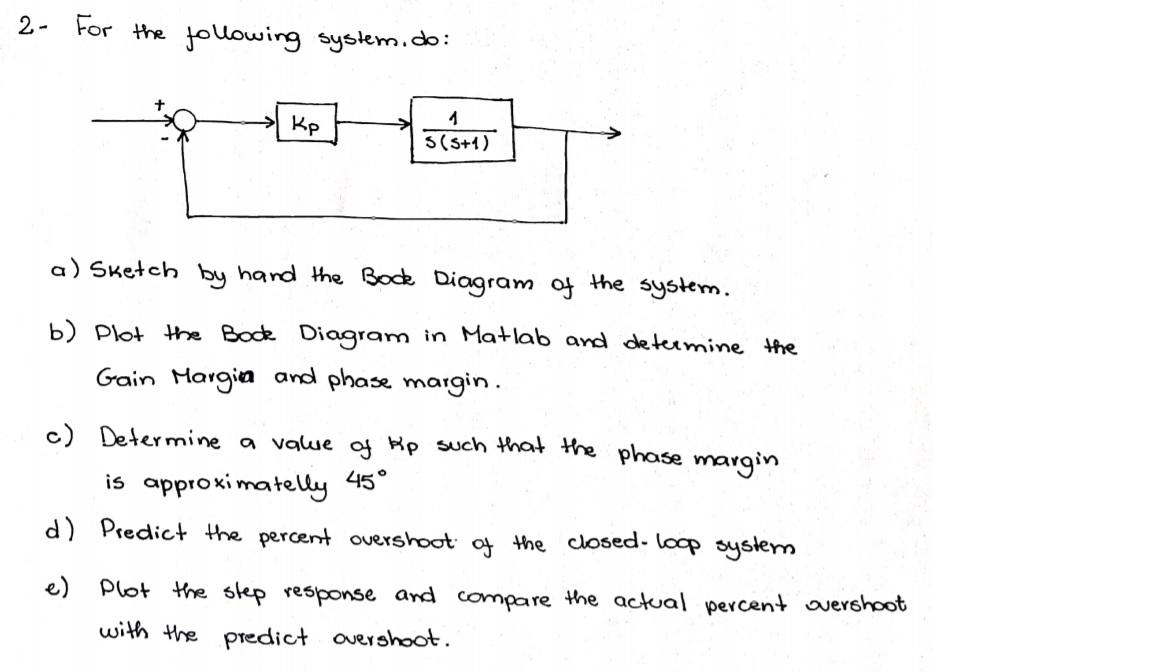 2- For the following system, do:
+
-
Kp
1
S(S+1)
a) Sketch by hand the Bode Diagram of the system.
b) Plot the Bode Diagram in Matlab and determine the
Gain Margin and phase margin.
c) Determine a value of Kp such that the phase margin
is approximatelly 45°
d) Predict the percent overshoot of the closed-loop system
e) Plot the step response and compare the actual percent overshoot
with the predict overshoot.